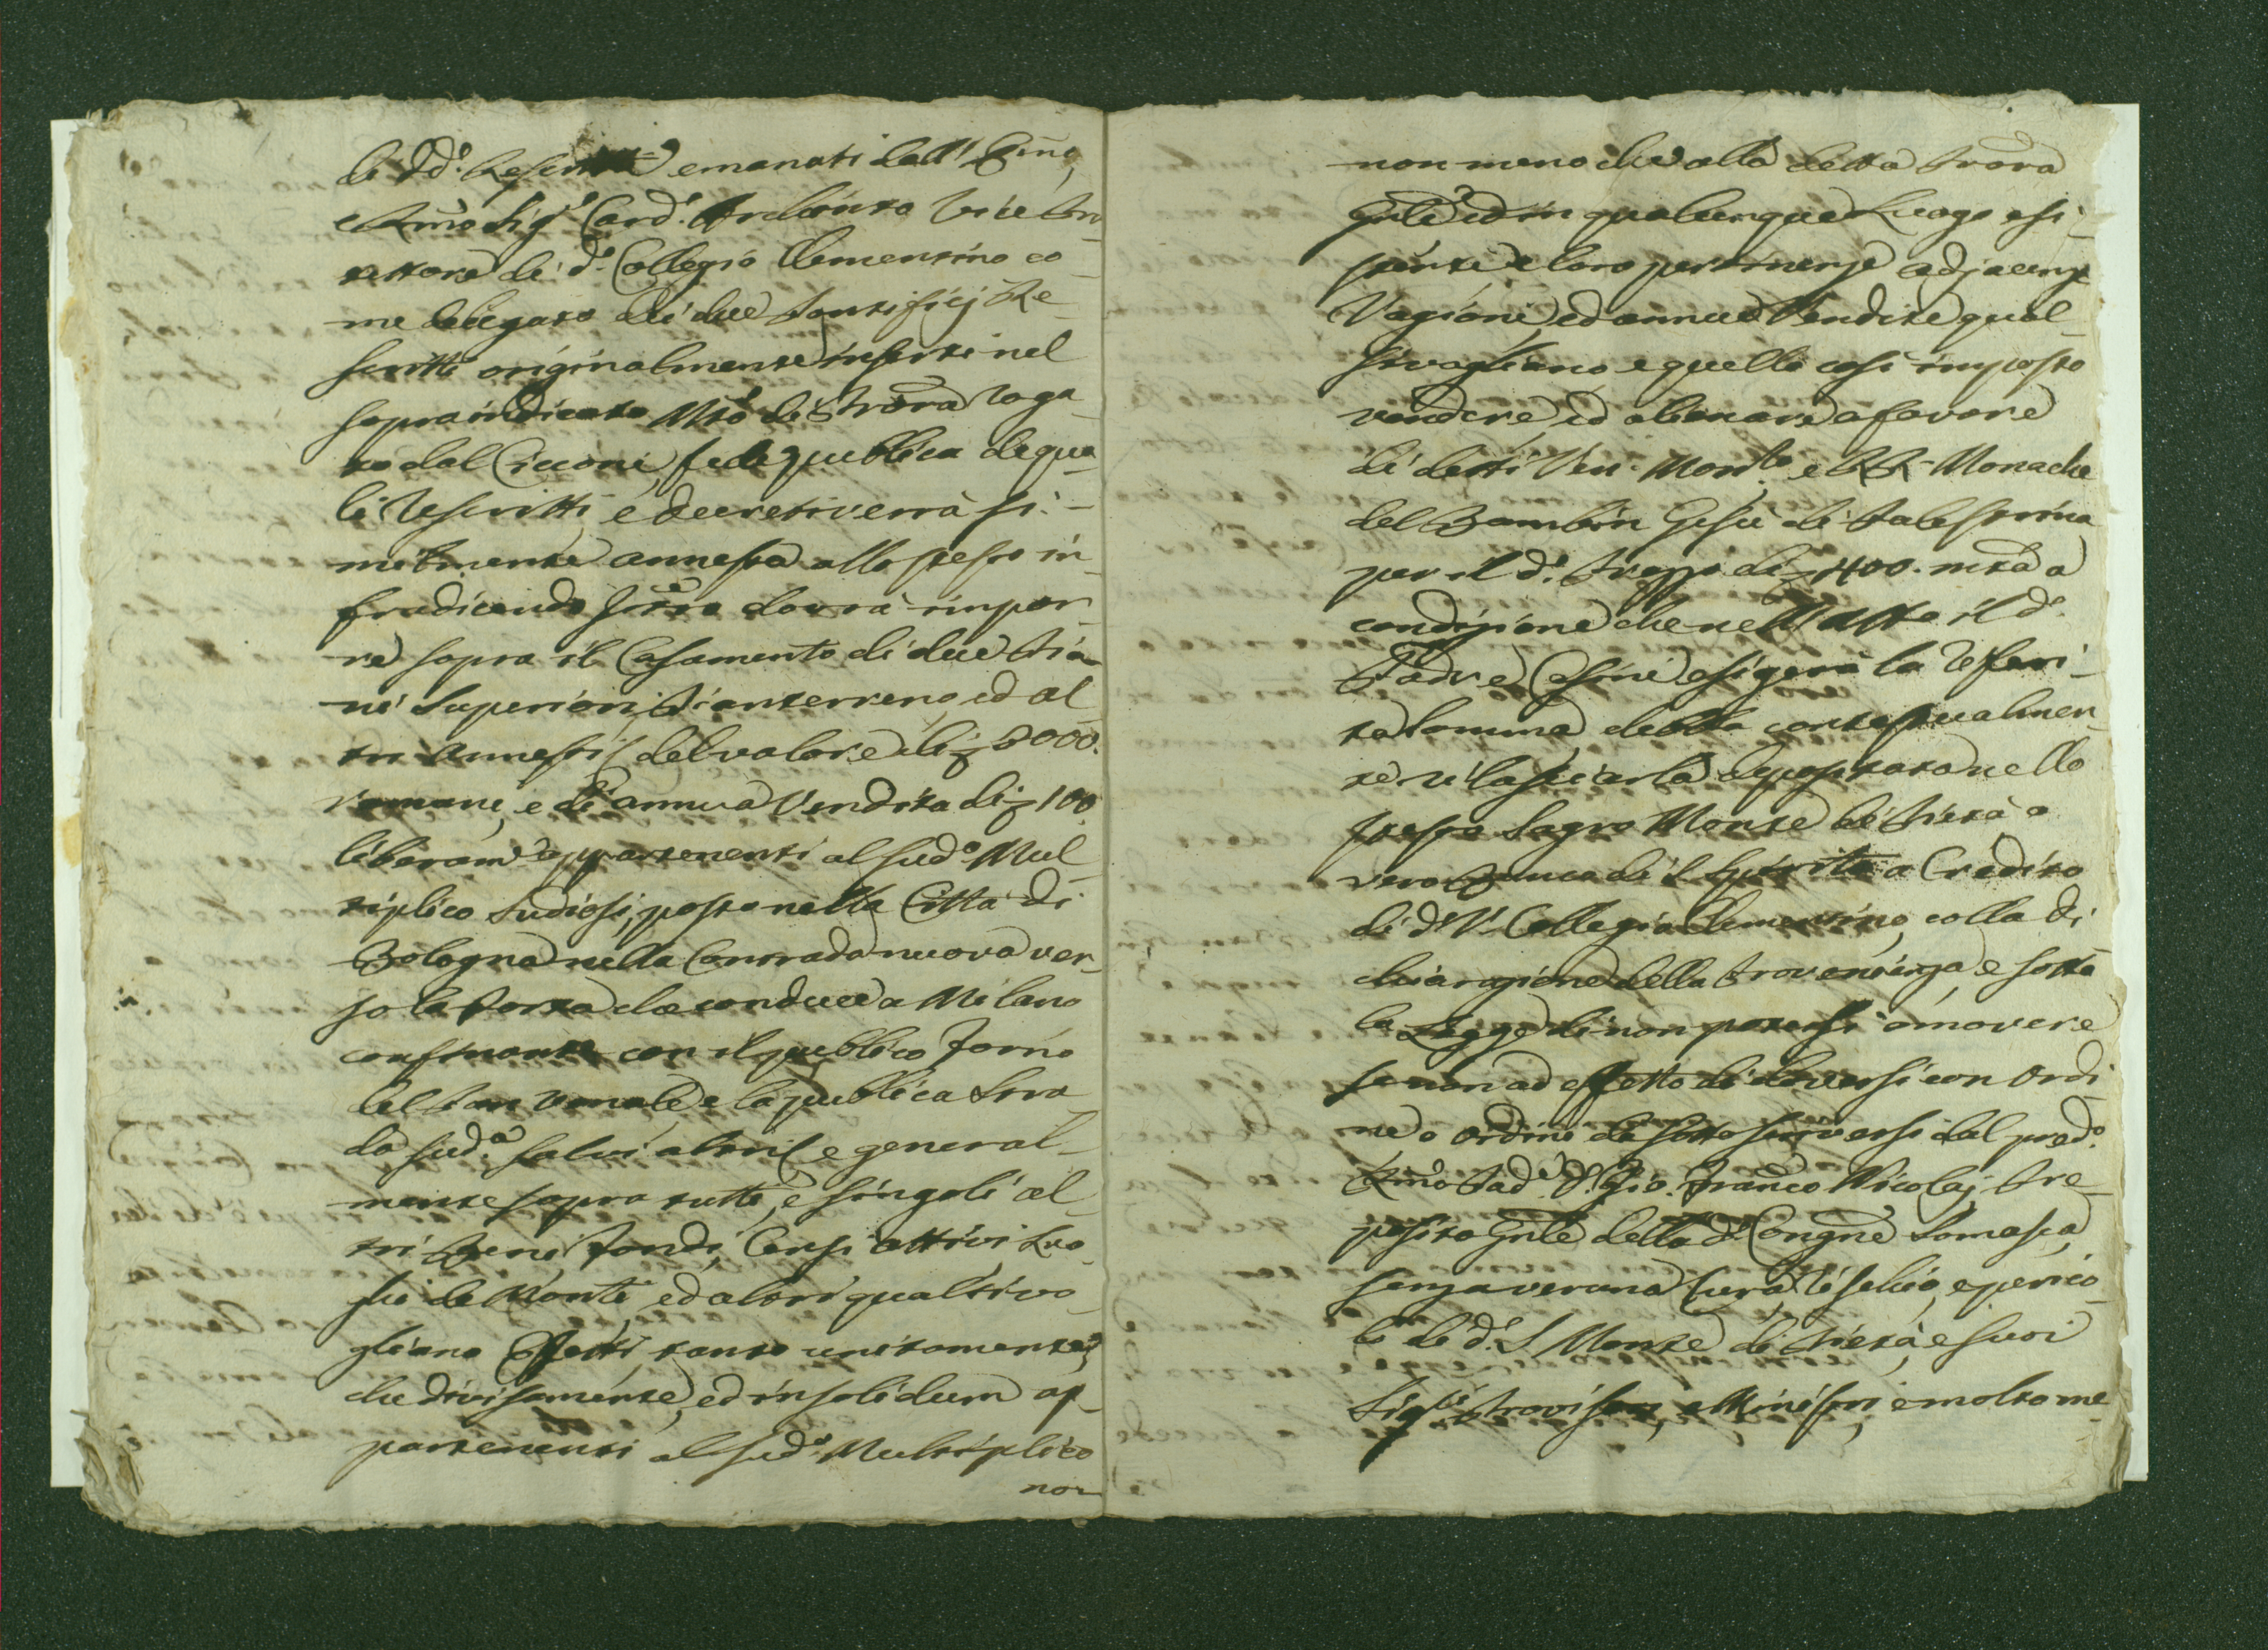 di dd. Rescritti emanati dall' Emo,
e Rmo Sig.e Card. Archinto Vice Pro
tettore di d.o Collegio Clementino co
me delegato di due Pontificj Re
scritti originalmente inserti nel
sopraindicato Mto di Prora roga
to dal Cicconi, fede publica de qua
li Rescritti, e decreti verrà si-
milmente annessa allo stesso in
fradicendo Istro dovrà impor
re sopra il Casamento di due Pia
ni Superiori, Pianterreno, ed al
tri annessi del valore di 3000.
romani, e di annua Rendita di 100
liberam.te appartenenti al sud.o Mul
tiplico Sudiosi, posto nella Città di
Bologna nella Contrada nuova ver
so la Porta che conduce a Milano
confinante con il publico Forno
del Pan Venale, e la publica Stra
da sud.a salvi altri, e general
mente sopra tutti, e singoli al
tri Beni, Fondi, Censi attivi Luo
ghi de Monti, ed altri qualsivo
gliano Effetti tanto unitamente
che divisamente, ed in solidum ap
partenenti al sud.o Multiplico
non
non meno che alla detta Prora
Gnle ed in qualunque Luogo esi
stenti e loro pertinenze adjacenze
Ragioni, ed annue Rendite qual
sivogliano e quello così imposto
vendere, ed alienare a favore
di detti Ven. Monro. e RR. Monache
del Bambin Gesù di Palestrina
per il d.o Prezzo di 1400. mta a
condizione che nell'atto il d.o
Padre Casini esigerà la referi
ta Somma, debba contestualmen
te rilasciarla depositata nello
stesso Sagro Monte di Pietà o
vero Banco di S. Spirito a Credito
di d.o V. Collegio Clementino, colla di
chiarazione della Provenienza, e sotto
la Legge di non potersi amovere
se non ad effetto di doversi con ordi
ne o ordini da sottoscriversi dal pred.o
Rmo Pad.e D. Gio. Franco Nicolaj Pre
posito Gnle della d.a Congne Somasca,
senza veruna Cura, e perico
lo di d.o S. Monte di Pietà, e suoi
Sig.ri Provisori, e Ministri, e molto me